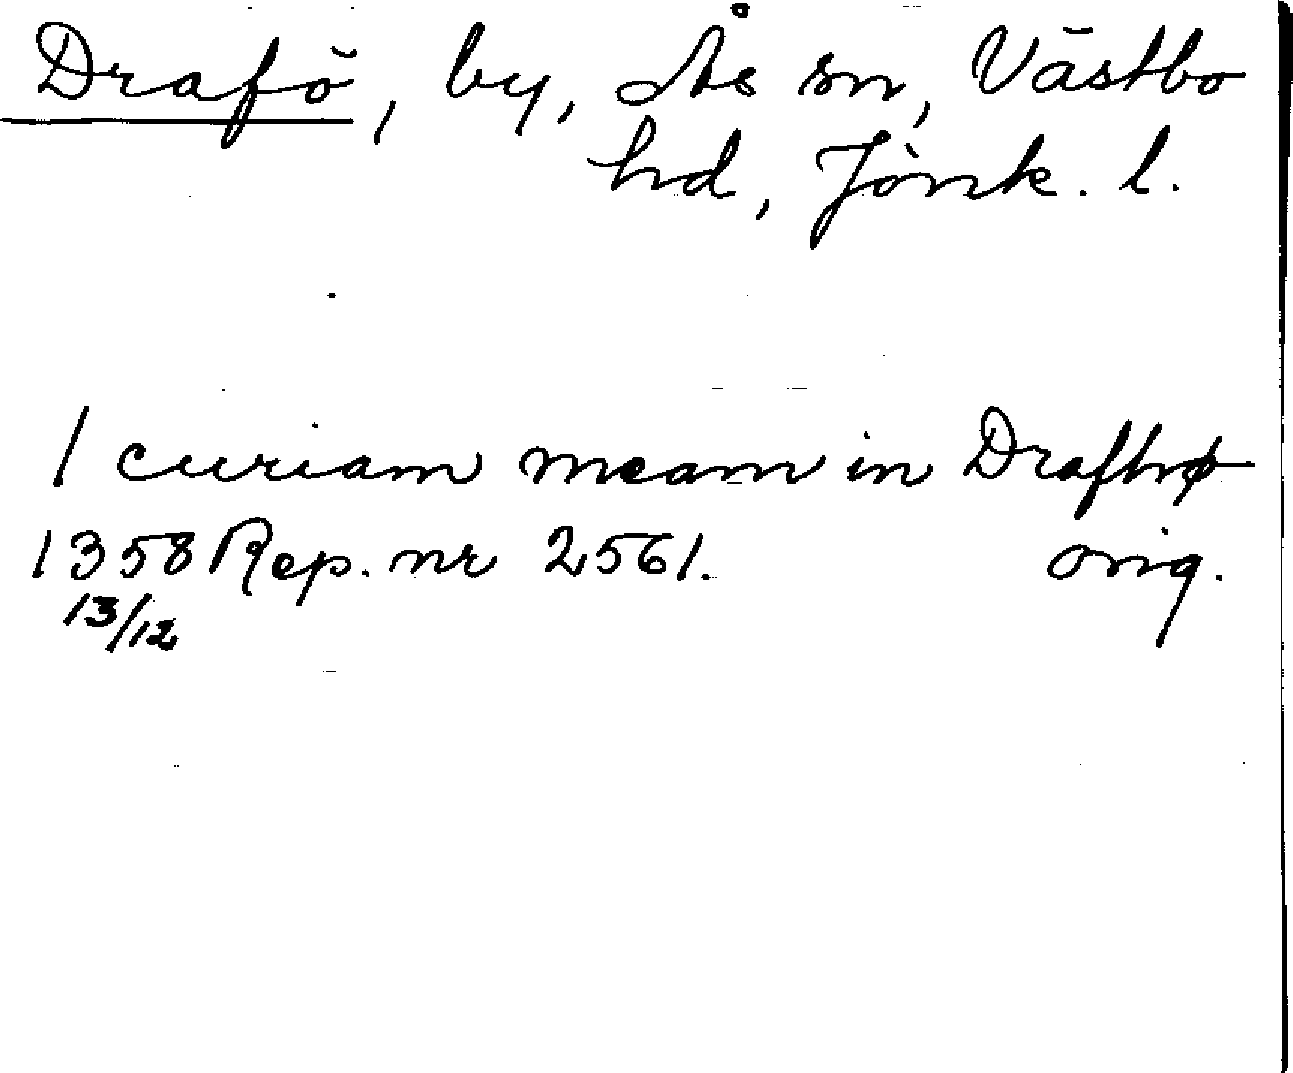 Drafö, by, Ås sn, Västbo
hd, Jönk. l.
1 curiam meam in Drafhø
1358 Rep. nr 2561. orig.
13/12